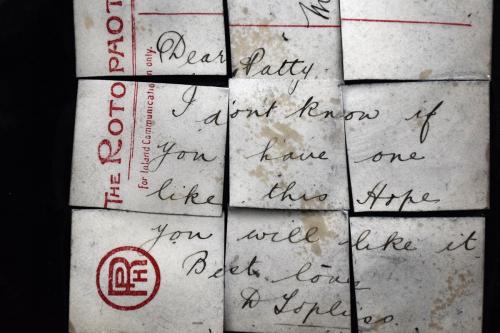 THE ROTO PHOT
For Inland Communication only.
Dear Patty
I dont know if
you have one
like this Hope
you will like it
Best love
D Topliss
RPH